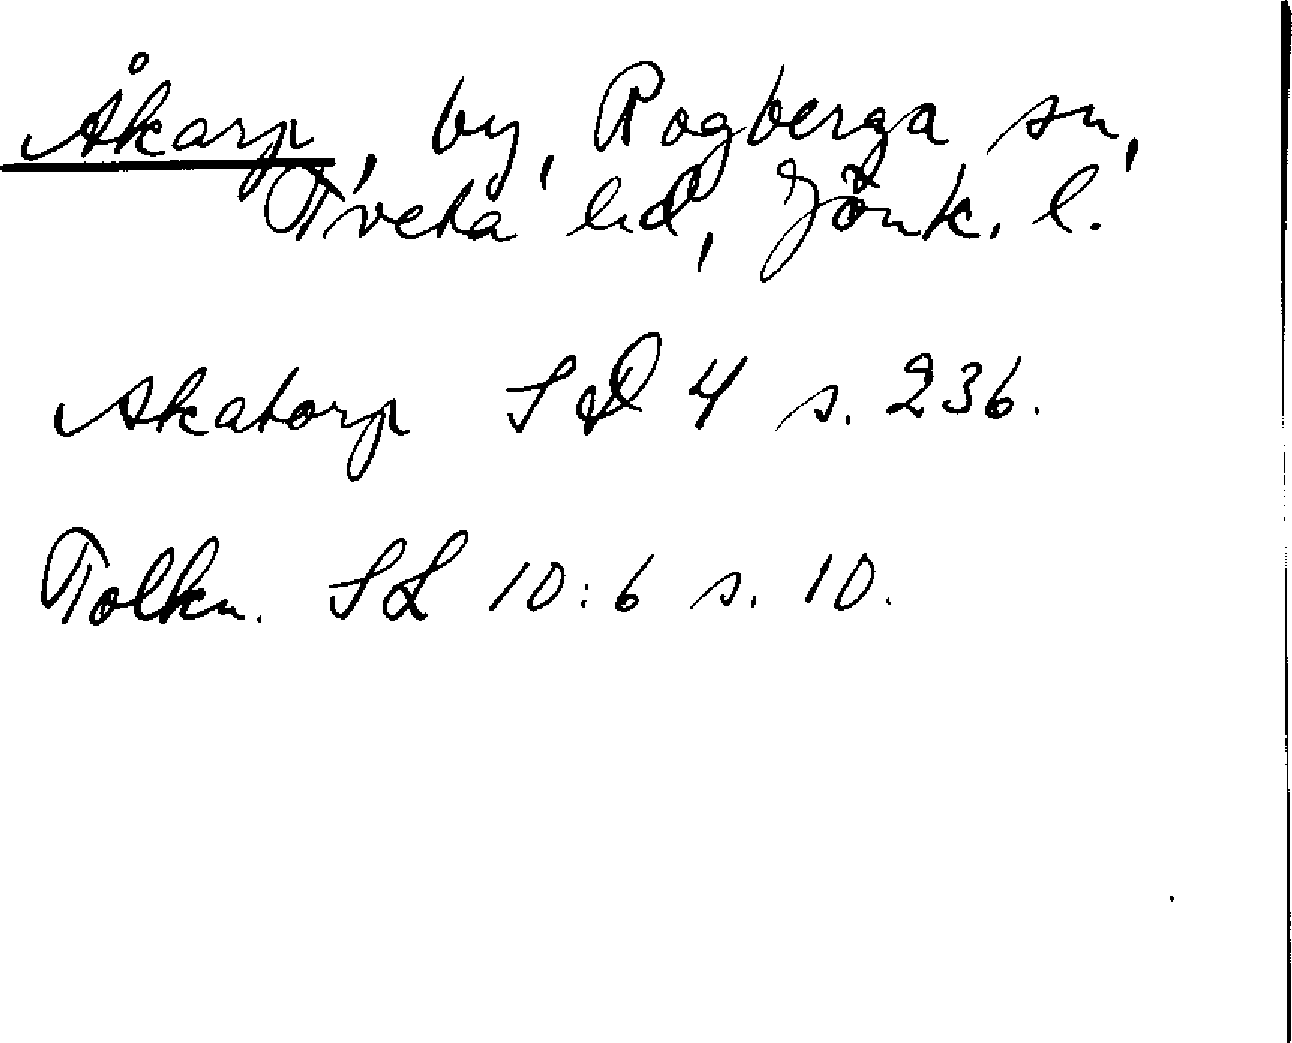 Åkarp, by, Rogberga sn,
Tveta hd, Jönk. l.
Akatorp SD 4 s. 236.
Tolkn. SL 10:6 s. 10.